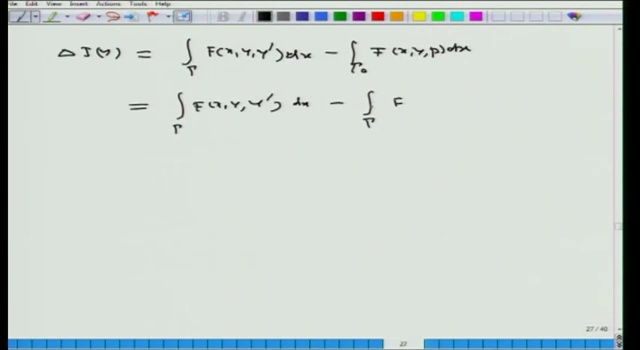 File Edit View Insert Actions Tools Help
Δ J(y) = ∫_Γ F(x, y, y') dx − ∫_Γ₀ F(x, y, p) dx
= ∫_Γ F(x, y, y') dx − ∫_Γ F
27 / 40
27